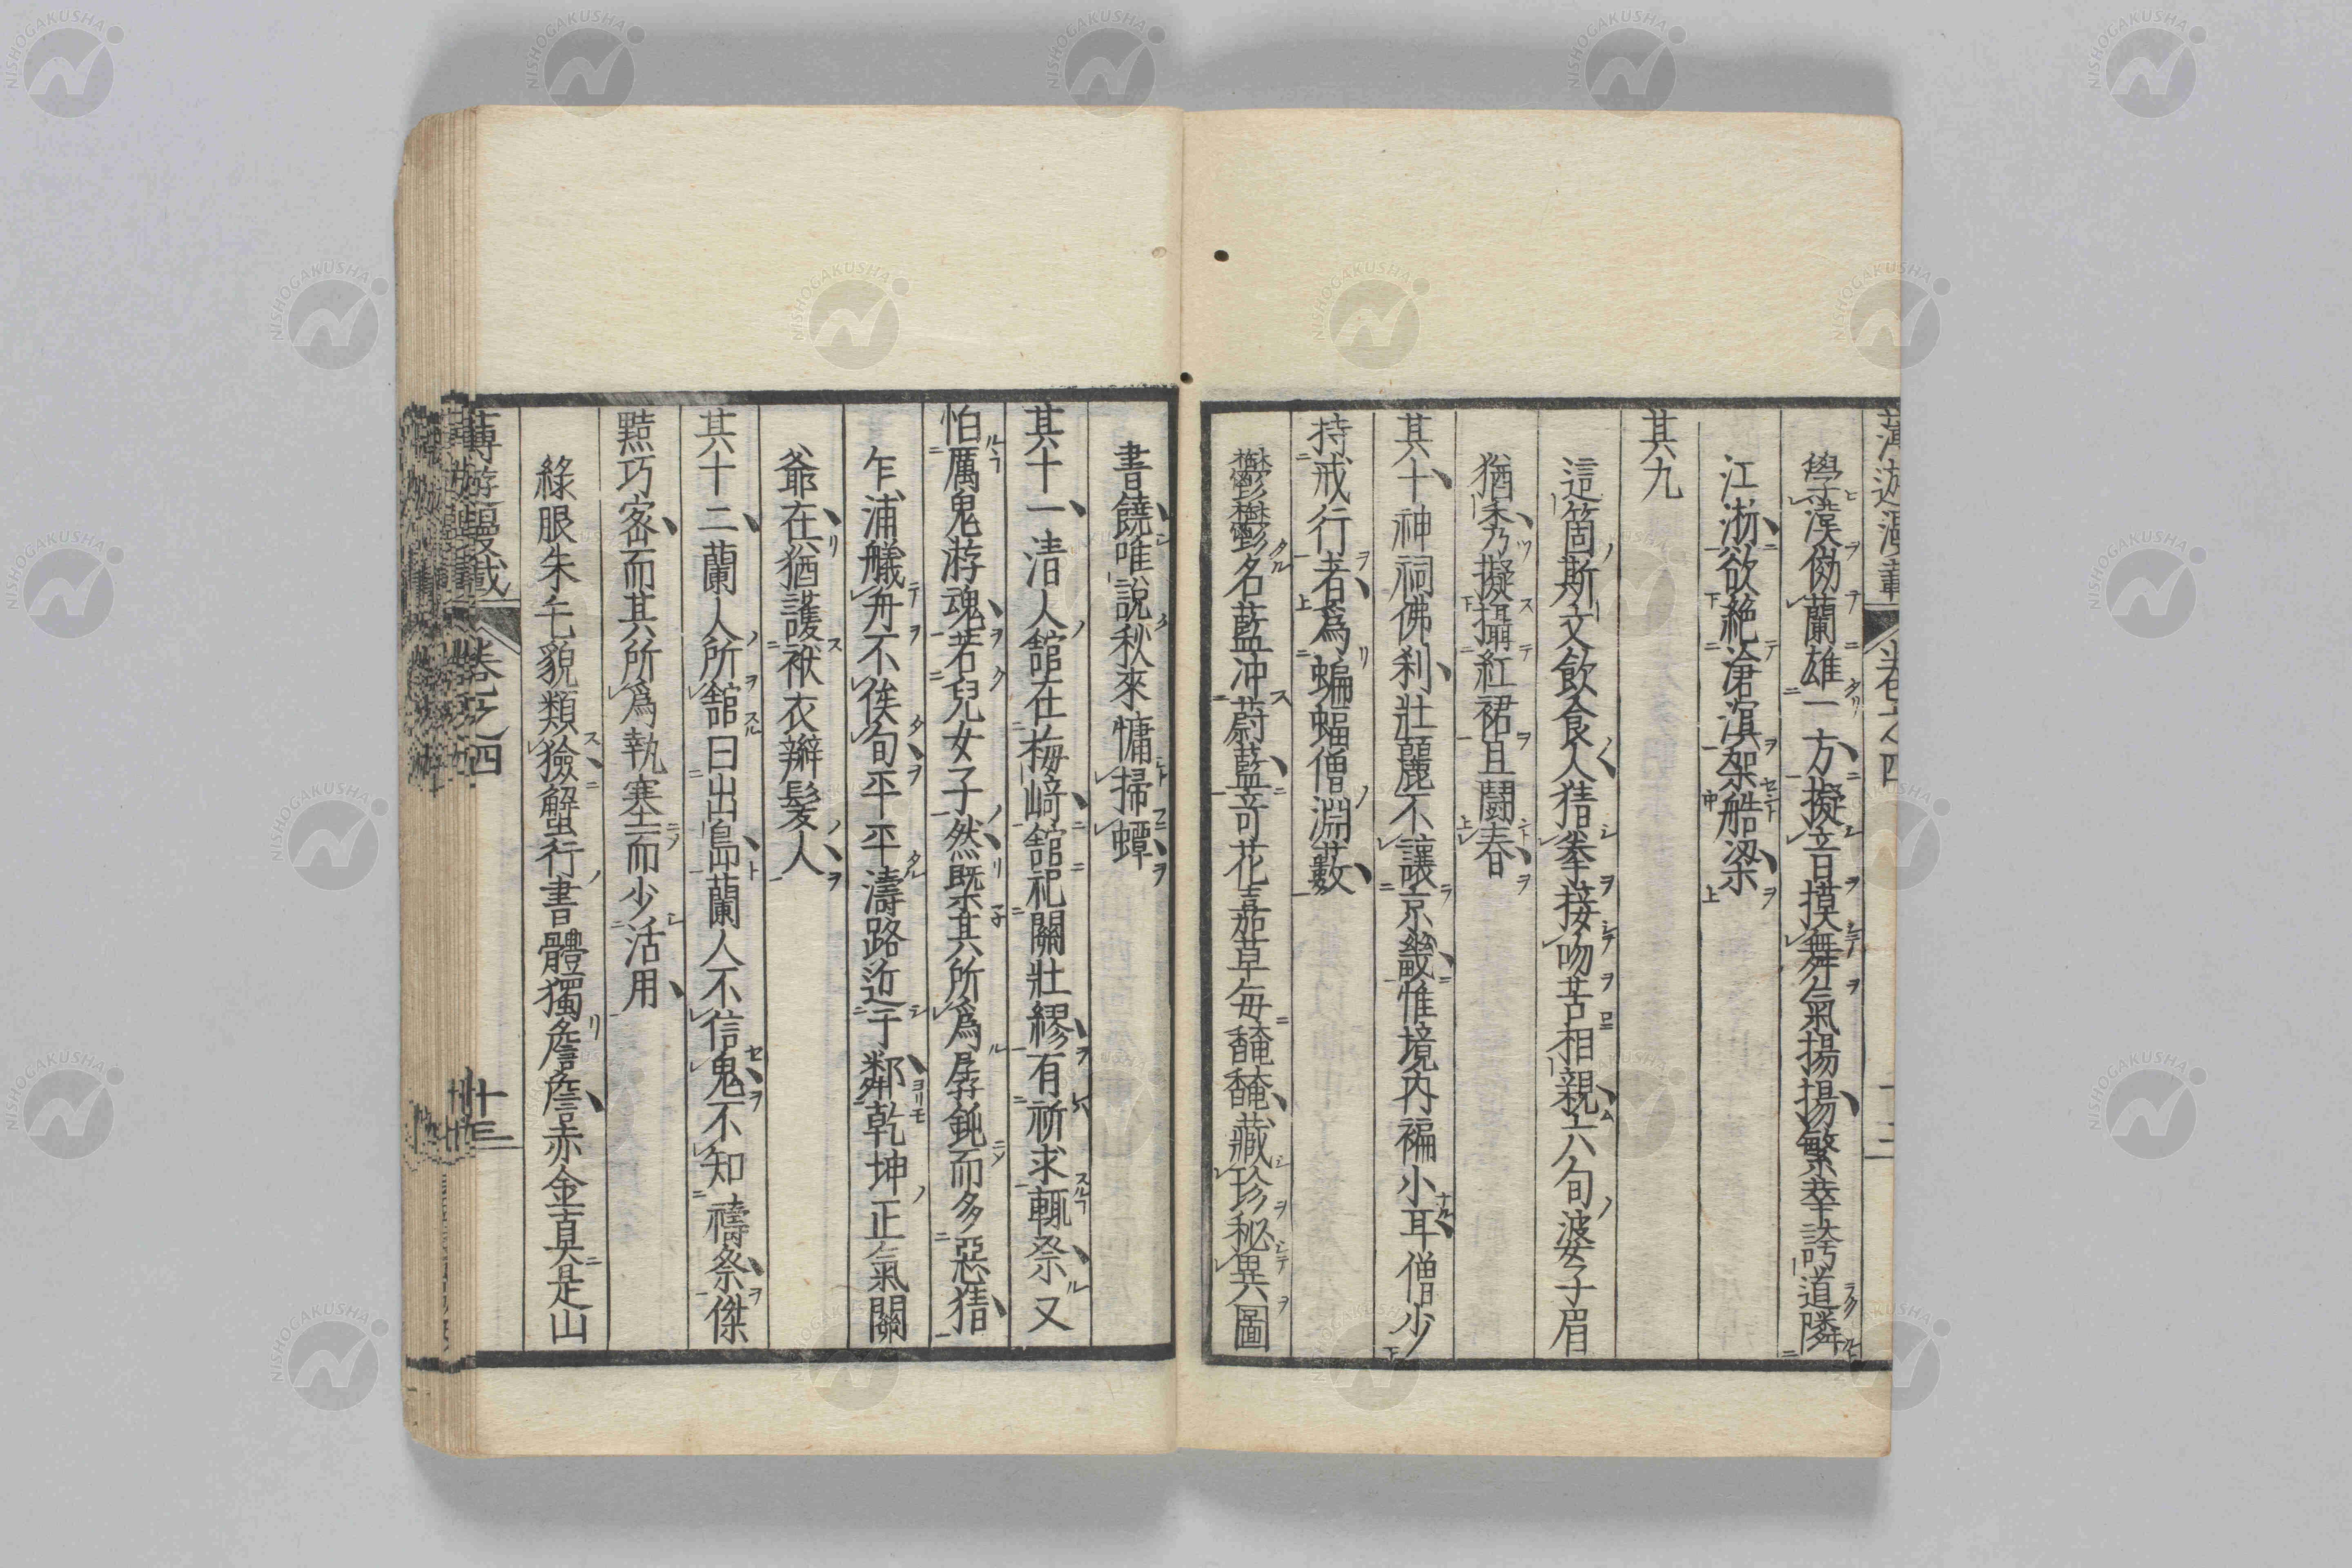 薄遊漫載 卷之四 十二
學漢倣蘭雄一方擬音摸舞氣揚揚繁華誇道隣
江浙欲絶滄溟架舩梁
其九
這箇斯文飲食人猜拳接吻苦相親六旬婆子眉
猶秀擬攝紅裙且鬪春
其十神祠佛刹壯麗不讓京畿惟境內褊小耳僧少
持戒行者爲蝙蝠僧淵藪
鬱鬱名藍冲蔚藍奇花嘉草每馣馣藏珍秘異圖
書饒唯說秋來慵掃蟫
其十一清人舘在梅﨑舘祀關壯繆有祈求輒祭又
怕厲鬼游魂若兒女子然既其所爲孱鈍而多惡猜
乍浦艤舟不俟旬平平濤路近于鄰乾坤正氣關
爺在猶護袱衣辮髮人
其十二蘭人所舘曰出島蘭人不信鬼不知禱祭傑
黠巧宻而其所爲執塞而少活用
綠眼朱毛貌類獫蟹行書體獨詹詹赤金真是山
薄游漫載 卷之四 十三
NISHOGAKUSHA